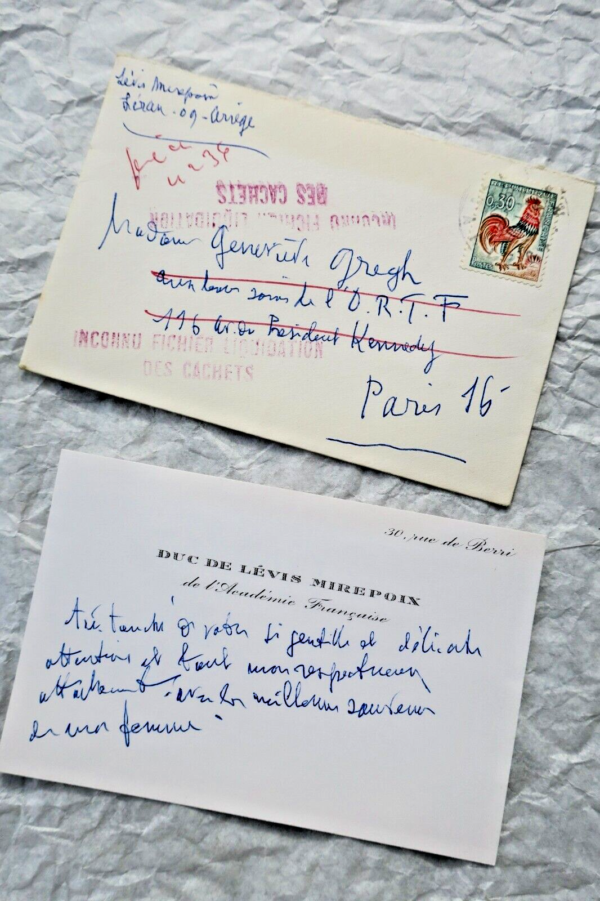 Lévis Mirepoix
Léran - 09 - Ariège
n° 34
INCONNU FICHIER LIQUIDATION
DES CACHETS
0,30
Madame Geneviève Gregh
aux bons soins de l'O.R.T.F
116 av. du Président Kennedy
INCONNU FICHIER LIQUIDATION
DES CACHETS
Paris 16
30, rue de Berri
DUC DE LÉVIS MIREPOIX
de l'Académie Française
très touché de votre si gentille et délicate
attention et tout mon respectueux
attachement avec les meilleurs souvenirs
de ma femme.